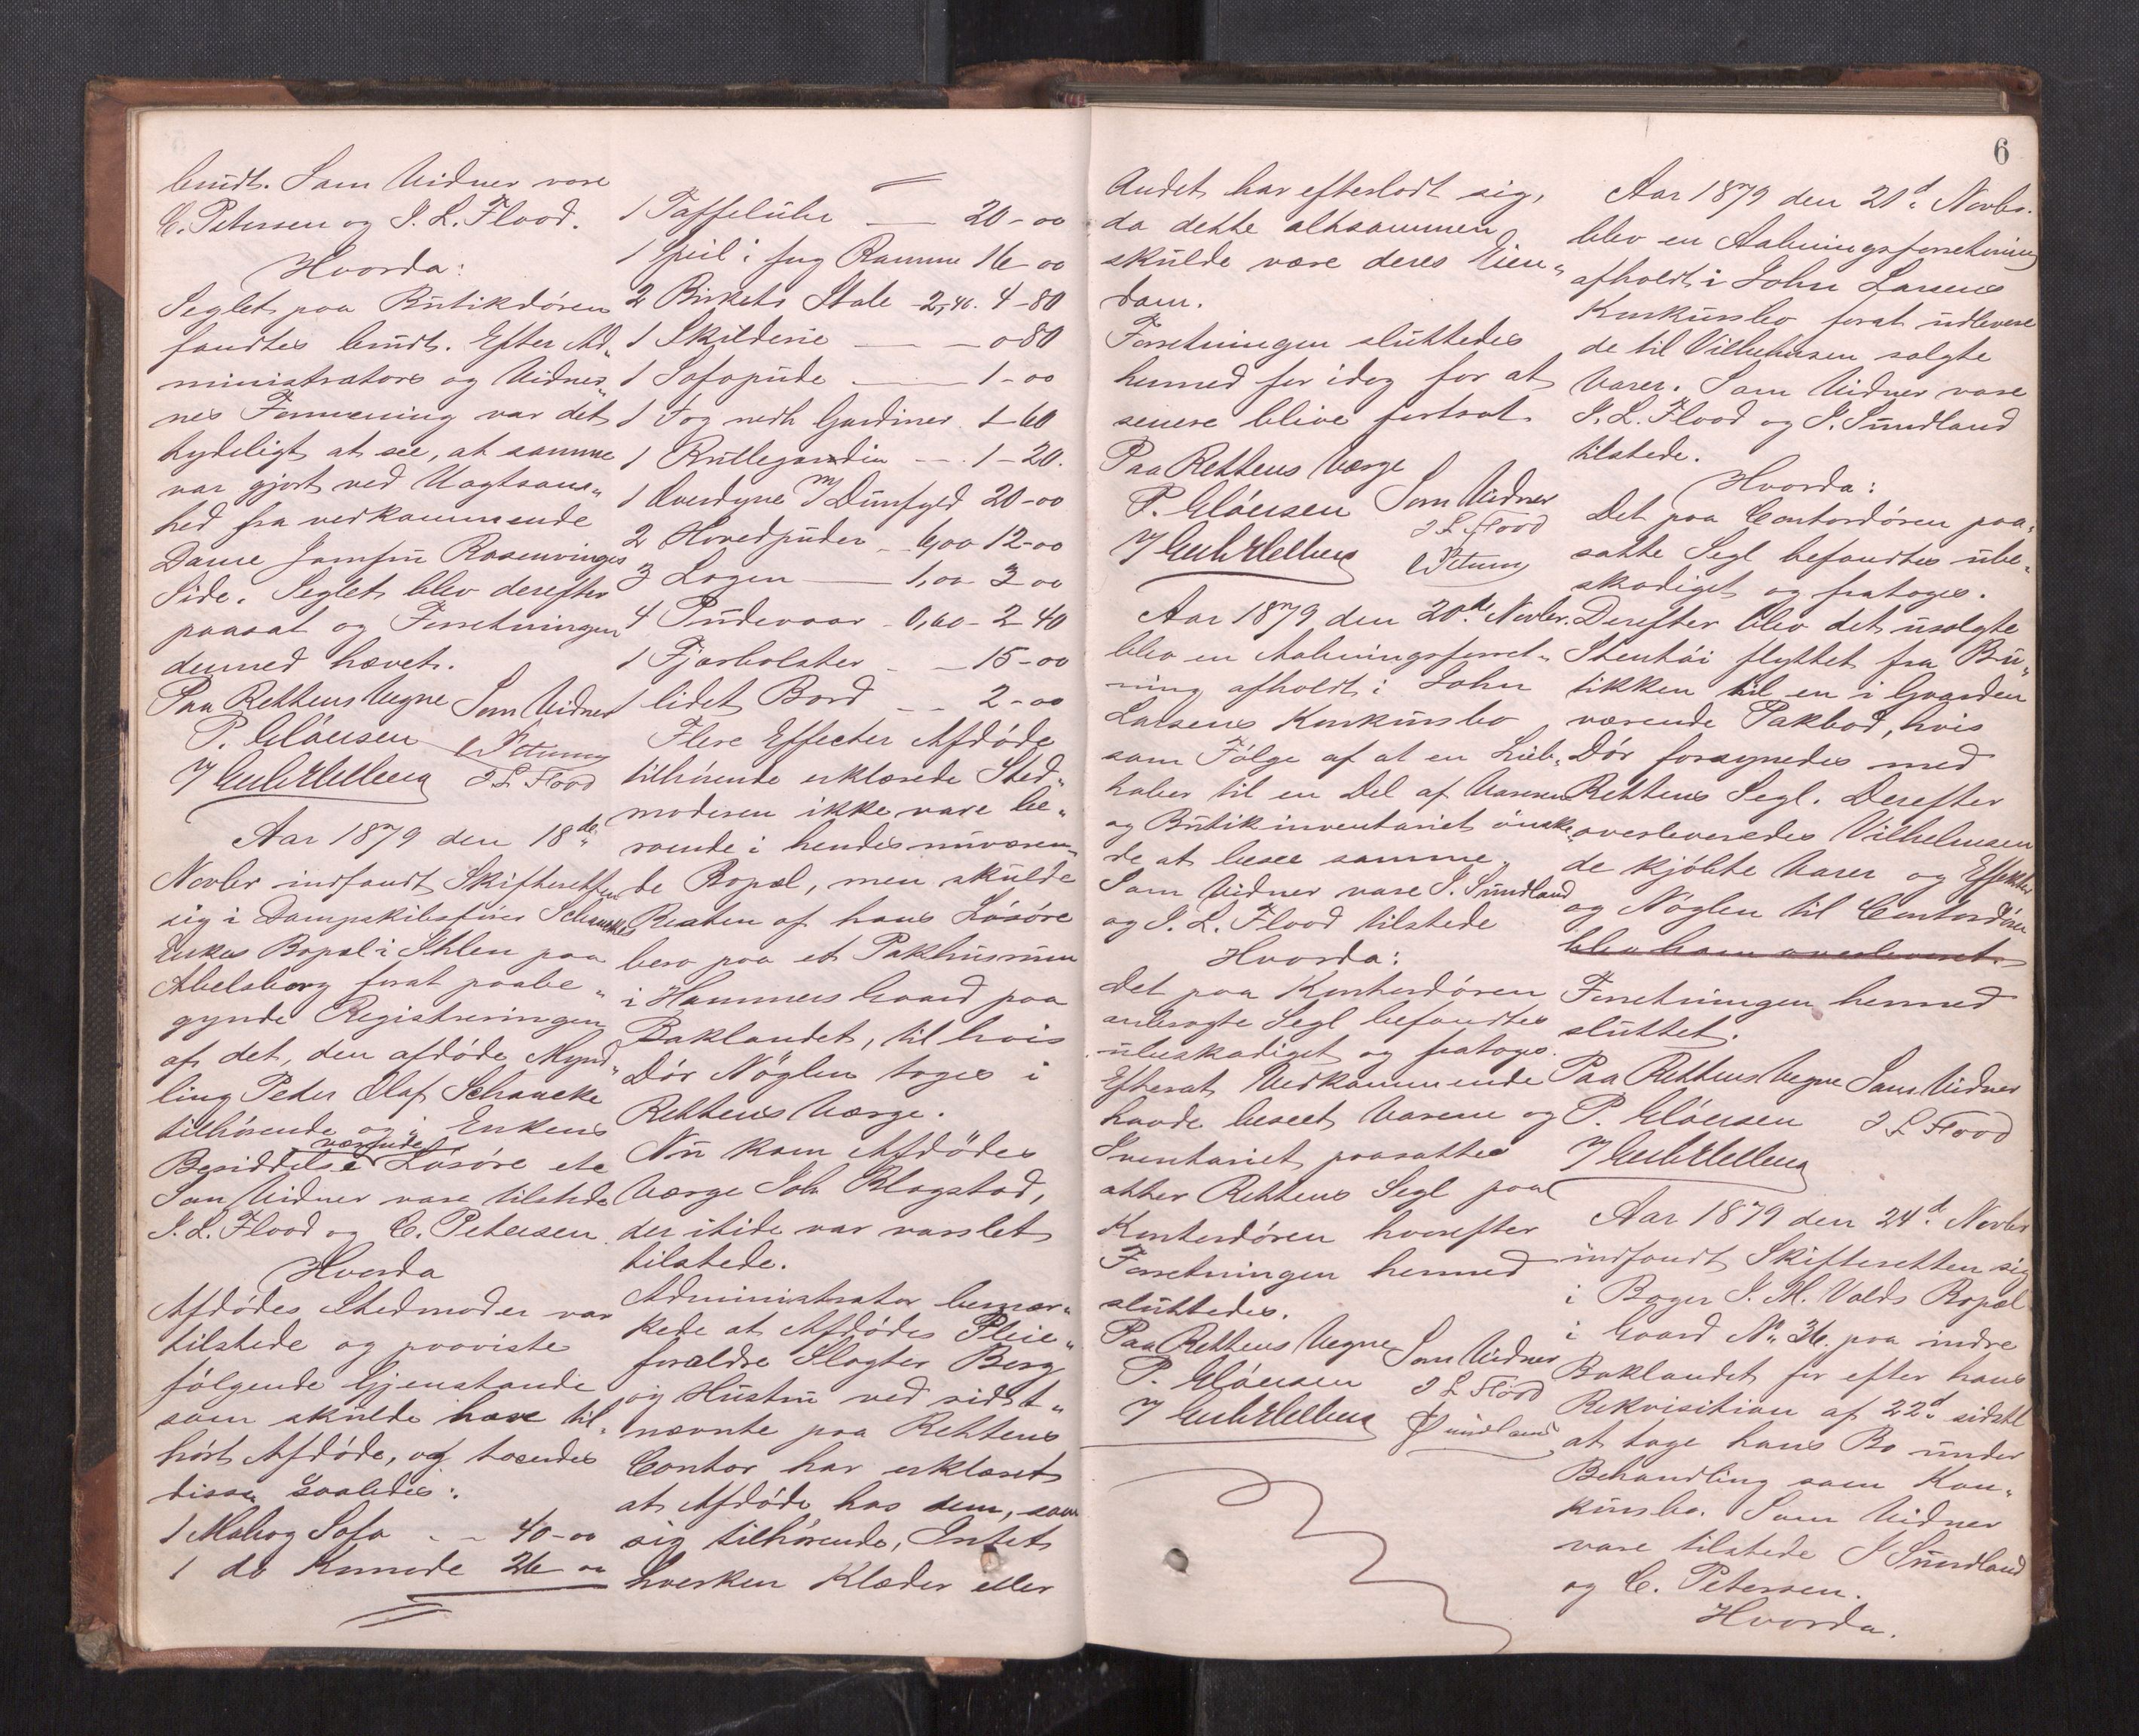 brudt. Som Vidner vare
C. Petersen og I. L. Flood.
Hvorda:
Seglet paa Butikdøren
fandtes brudt. Efter Ad„
ministrators og Vidner„
nes Formening var det
tydeligt at see, at samme
var gjort ved Uagtsom„
hed fra vedkommende
Dame Jomfru Rosenvinges
Side. Seglet blev derefter
paasat og Forretningen
dermed hævet.
Paa Rettens Vegne Som Vidner
P. Clausen C Petersen
I L Flood
Aar 1879 den 18de
Novbr indfandt Skifteretten
sig i Dampskibsfører Schanckes
Enkes Bopæl i Ihlen paa
Abelsborg forat paabe„
gynde Registreringen
af det, den afdøde Mynd„
ling Peder Olaf Schancke
tilhørende og i Enkens
Besiddelse værende Løsøre etc
Som Vidner vare tilstede
I. L. Flood og C. Petersen.
Hvorda
Afdødes Stedmoder var
tilstede og paaviste
følgende Gjenstande
som skulde have til„
hørt Afdøde, og toges
disse saaledes:
1 Mahog Sofa - - 40-00
1 do Komode 26 00
1 Taffeluhr 20-00
1 Speil i fug Ramme 16 00
2 Birkets Stole 2,40. 4-80
1 Skilderie 0 80
1 Sofapude 1-00
1 Fag nedh Gardiner 1-60
1 Rullegardin 1-20.
1 Overdyne m/ Dunfyld 20-00
2 Hovedpuder 6,00 12-00
3 Lagen 1,00 3 00
4 Pudevaar 0,60 - 2 40
1 Fjærbolster 15-00
1 lidet Bord 2-00
Flere Effecter Afdøde
tilhørende erklærede Sted„
moderen ikke vare be„
roende i hendes nuværen„
de Bopæl, men skulde
Resten af hans Løsøre
bero paa et Pakhusrum
i Hammers Gaard paa
Baklandet, til hvis
Dør Nøglen toges i
Rettens Værge.
Nu kom Afdødes
Værge Joh Blagstad,
der itide var varslet
tilstede.
Administrator bemær„
kede at Afdødes Pleie„
forældre Slagter Berg
og Hustru ved sidst„
nævnte paa Rettens
Contor har erklæret
at Afdøde hos dem, som
sig tilhørende, Intet
hverken Klæder eller
6
Andet har efterladt sig,
da dette altsammen
skulde være deres Eien„
dom.
Forretningen sluttedes
hermed for idag for at
senere blive fortsat.
Paa Rettens Vegne
P. Clausen Som Vidner
I L Flood
C Petersen
Aar 1879 den 20de Novbr.
blev en Aabningsforret„
ning afholdt i John
Larsens Konkursbo
som Følge af at en Lieb„
haber til en Del af Varerne
og Butikinventariet ønske„
de at besee samme.
Som Vidner vare I. Sundland
og I. L. Flood tilstede
Hvorda:
Det paa Kontordøren
anbragte Segl befandtes
ubeskadiget og fratoges.
Efterat Vedkommende
havde beseet Varerne og
Iventariet paasattes
atter Rettens Segl paa
Kontordøren hvorefter
Forretningen hermed
sluttedes.
Paa Rettens Vegne Som Vidner
P. Clausen I L Flood
I Sundland
Aar 1879 den 21d Novbr.
blev en Aabningsforretning
afholdt i John Larsens
Konkursbo forat udlevere
de til Vilhelmsen solgte
Varer. Som Vidner vare
I. L. Flood og I. Sundland
tilstede.
Hvorda:
Det paa Contordøren paa„
satte Segl befandtes ube„
skadiget og fratoges.
Derefter blev det usolgte
Stentøi flyttet fra Bu„
tikken til en i Gaarden
værende Pakbod, hvis
Dør forsynedes med
Rettens Segl. Derefter
overleveredes Vilhelmsen
de kjøbte Varer og Effekter
og Nøglen til Contordøren
blev ham overleveret.
Forretningen hermed
sluttet.
Paa Rettens Vegne Som Vidner
P. Clausen I L Flood
Aar 1879 den 24d. Novbr
indfandt Skifteretten sig
i Bager I. M. Valds Bopæl
i Gaard No 36. paa indre
Baklandet for efter hans
Rekvisition af 22d. sidstl
at tage hans Bo under
Behandling som Kon„
kursbo. Som Vidner
vare tilstede I Sundland
og C. Petersen.
Hvorda.